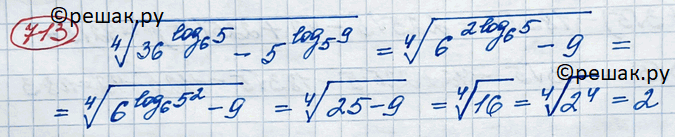 ©решак.ру
713 ∜(36^(log₆5) − 5^(log₅9)) = ∜(6^(2log₆5) − 9) =
©решак.ру
= ∜(6^(log₆5²) − 9) = ∜(25 − 9) = ∜16 = ∜(2⁴) = 2